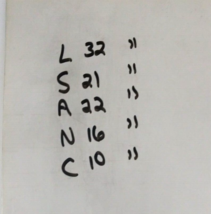 L 32 "
S 21 "
A 22 "
N 16 "
C 10 "